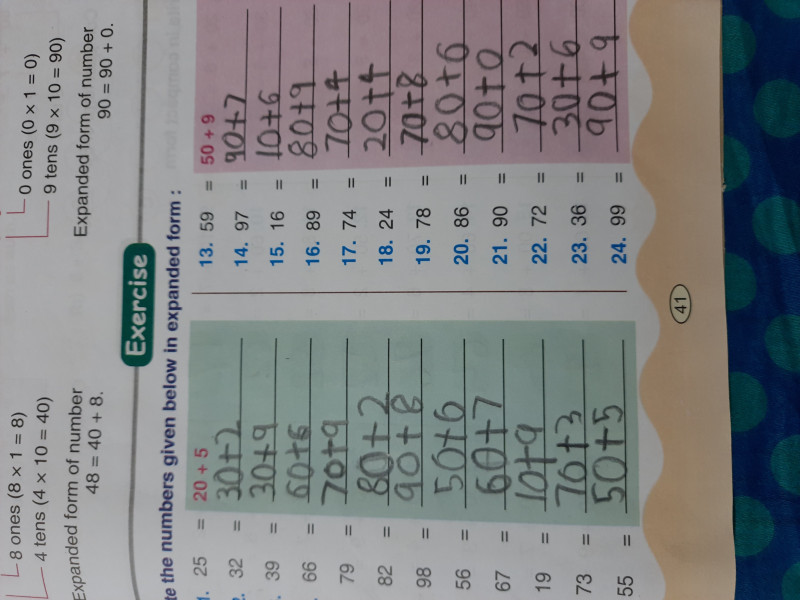 8 ones (8 × 1 = 8)
4 tens (4 × 10 = 40)
Expanded form of number
48 = 40 + 8.
0 ones (0 × 1 = 0)
9 tens (9 × 10 = 90)
Expanded form of number
90 = 90 + 0.
Exercise
te the numbers given below in expanded form :
25 = 20 + 5
32 = 30+2
39 = 30+9
66 = 60+6
79 = 70+9
82 = 80+2
98 = 90+8
56 = 50+6
67 = 60+7
19 = 10+9
73 = 70+3
55 = 50+5
13. 59 = 50 + 9
14. 97 = 90+7
15. 16 = 10+6
16. 89 = 80+9
17. 74 = 70+4
18. 24 = 20+4
19. 78 = 70+8
20. 86 = 80+6
21. 90 = 90+0
22. 72 = 70+2
23. 36 = 30+6
24. 99 = 90+9
41